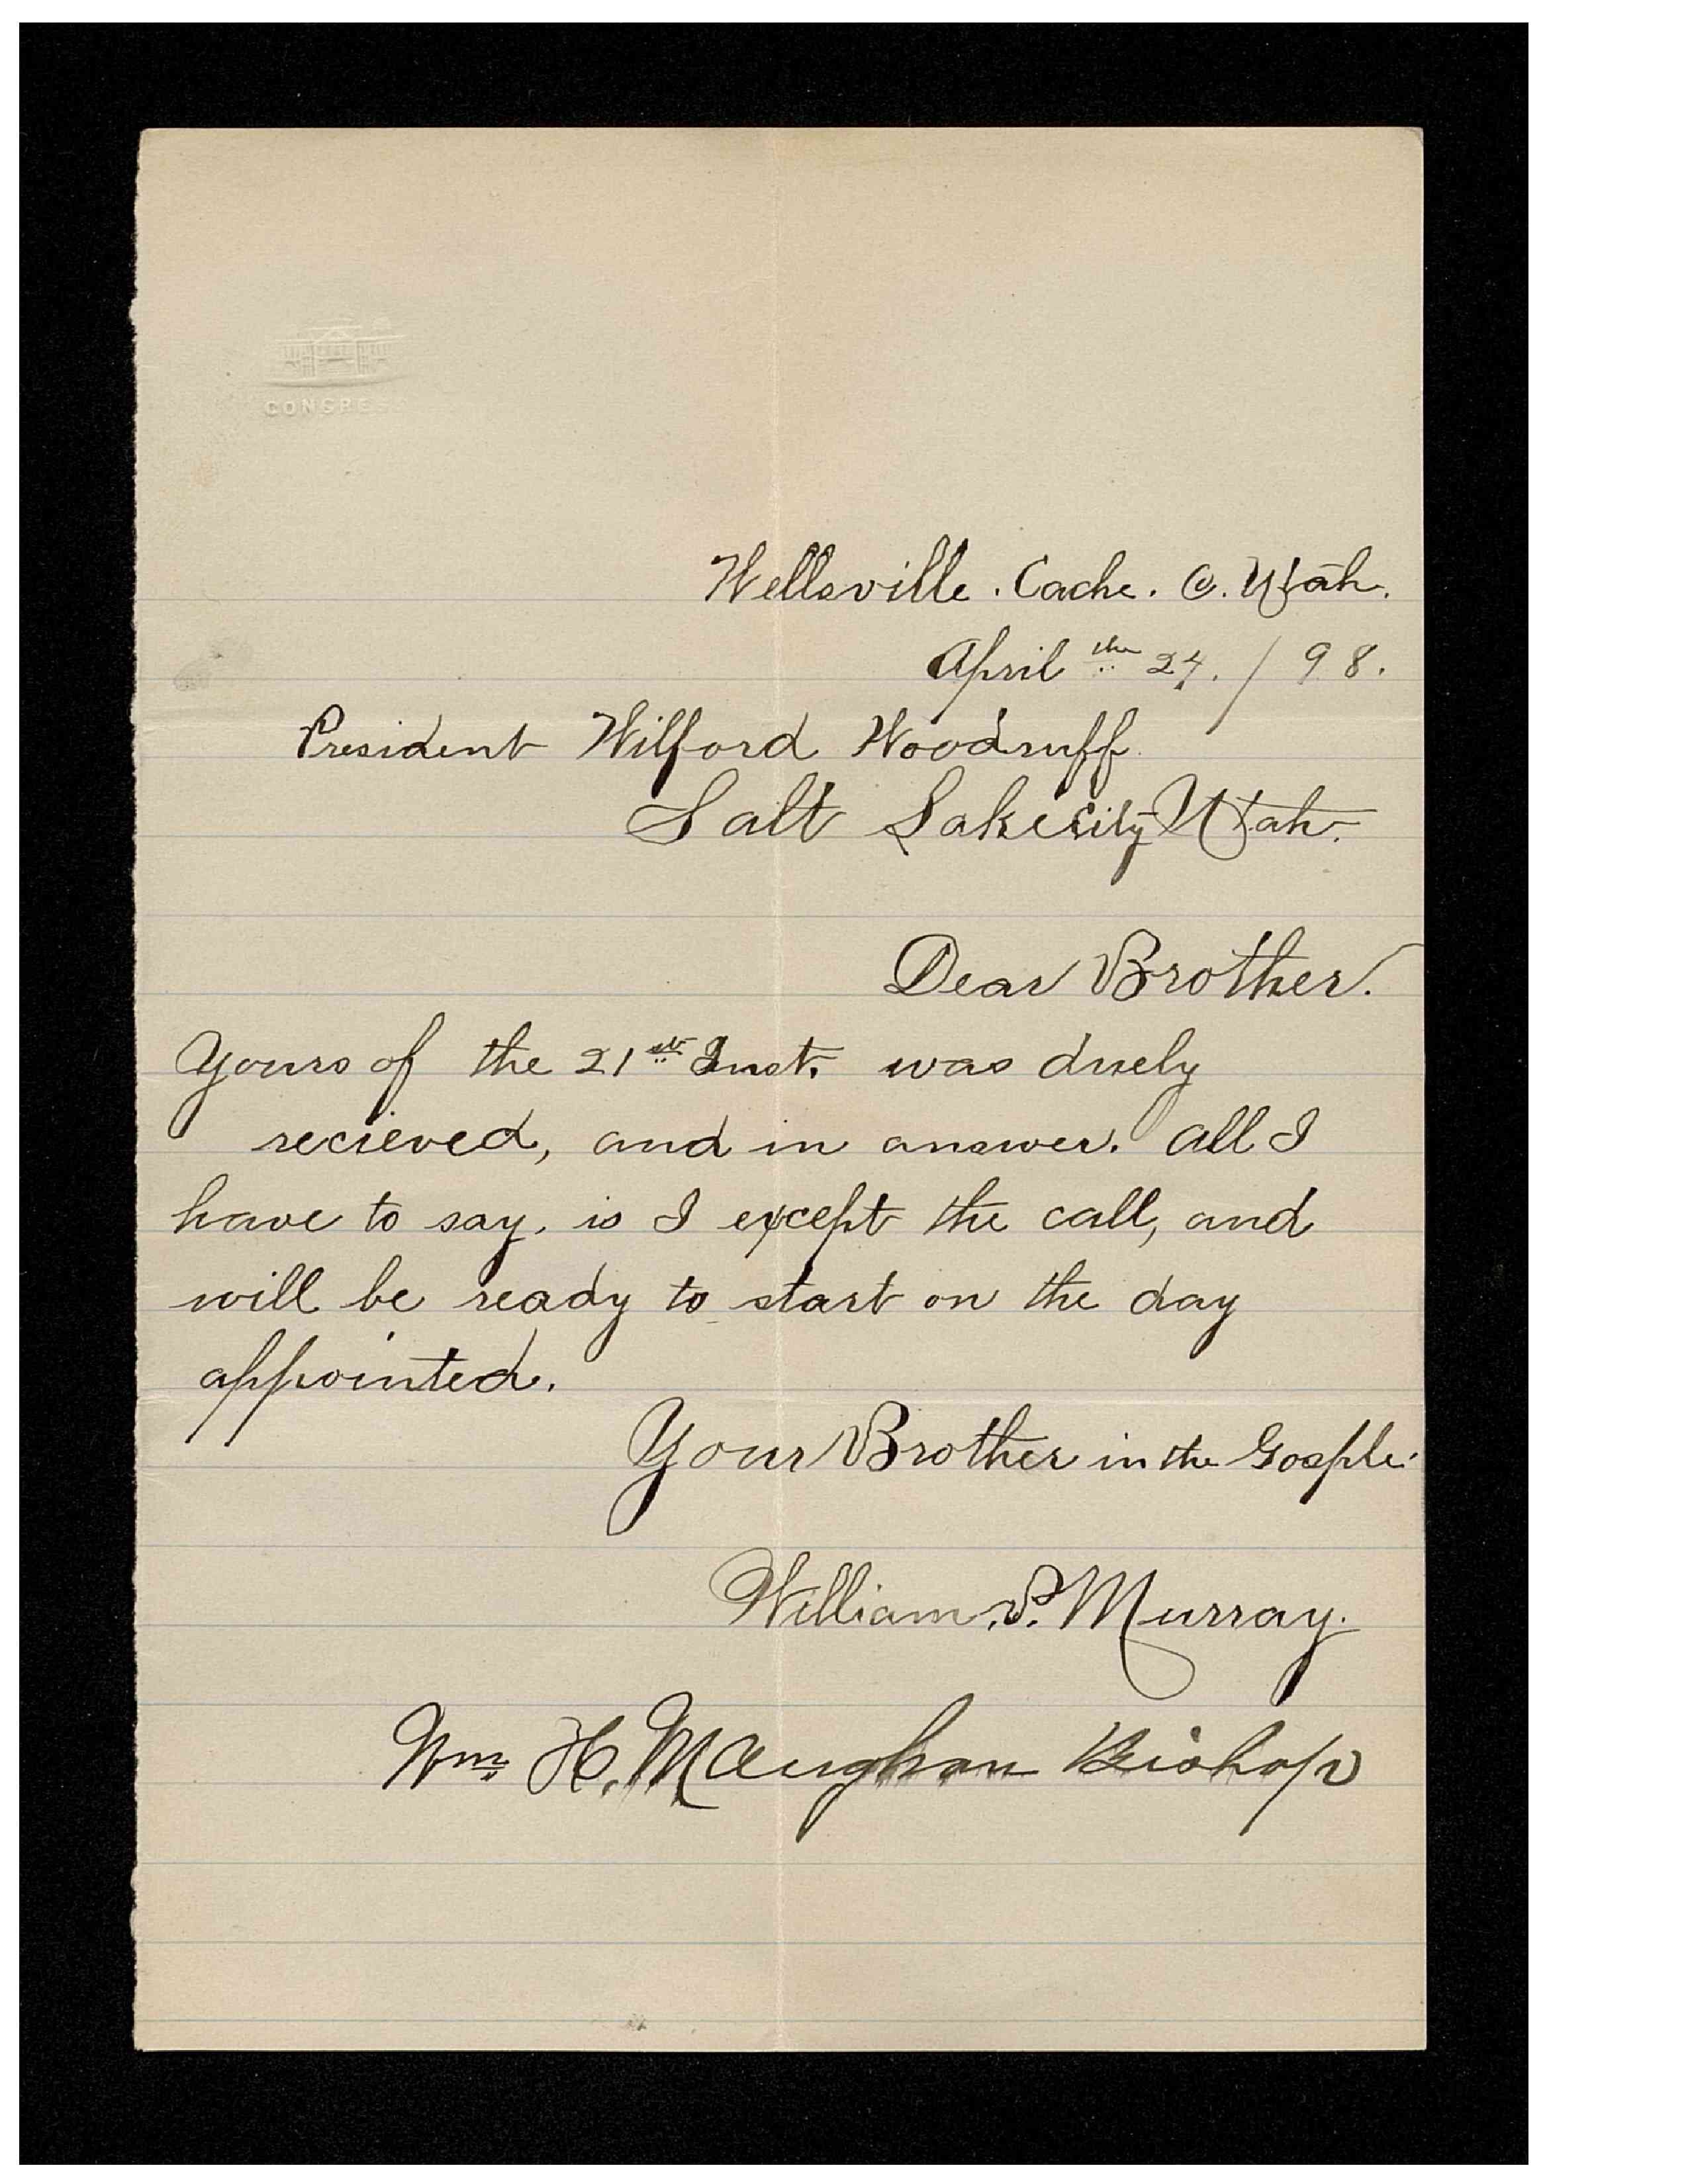 CONGRESS
Wellsville. Cache. Co. Utah.
April the 24. / 98.
President Wilford Woodruff.
Salt Lake City Utah.
Dear Brother.
Yours of the 21st Inst. was duely
recieved, and in answer. all I
have to say, is I except the call, and
will be ready to start on the day
appointed.
Your Brother in the Gosple.
William S. Murray.
Wm. H. Maughan Bishop